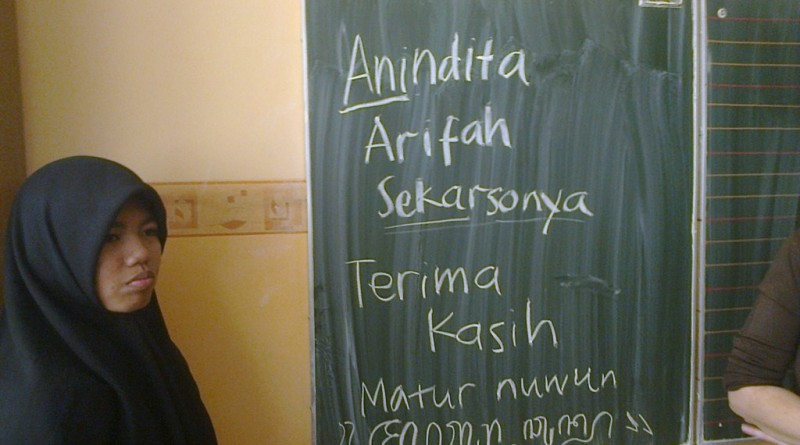 Anindita
Arifah
Sekarsonya
Terima
Kasih
Matur nuwun